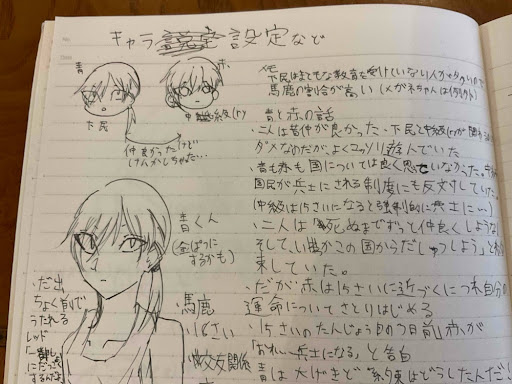 キャラ設定など
青
赤
下民
中級(r)
仲良かったけど
けんかしちゃった…
メモ
下民はまともな教育を受けていない人が多いので
馬鹿の割合が高い(メガネちゃんは例外)
青と赤の話
・二人は昔仲が良かった、下民と中級(r)が関わるのは
ダメなのだが、よくコッソリ遊んでいた
・青も赤も国については良く思っていなかった。中級
国民が兵士にされる制度にも反対していた。
(中級は15さいになると強制的に兵士に…)
・二人は「死ぬまでずっと仲良くしような
そしていつかこの国からだしゅつしよう」と約
束していた。
・だが、赤は15さいに近づくにつれ自分の
運命についてさとりはじめる
・15さいのたんじょう日の前日、赤が
「おれ、兵士になる」と告白
青は大げきど「約束はどうしたんだ!
青くん
(金ぱつに
するかも)
・だ出
ちょく前で
うたれる
レッド
・馬鹿
・15さい
・交友関係